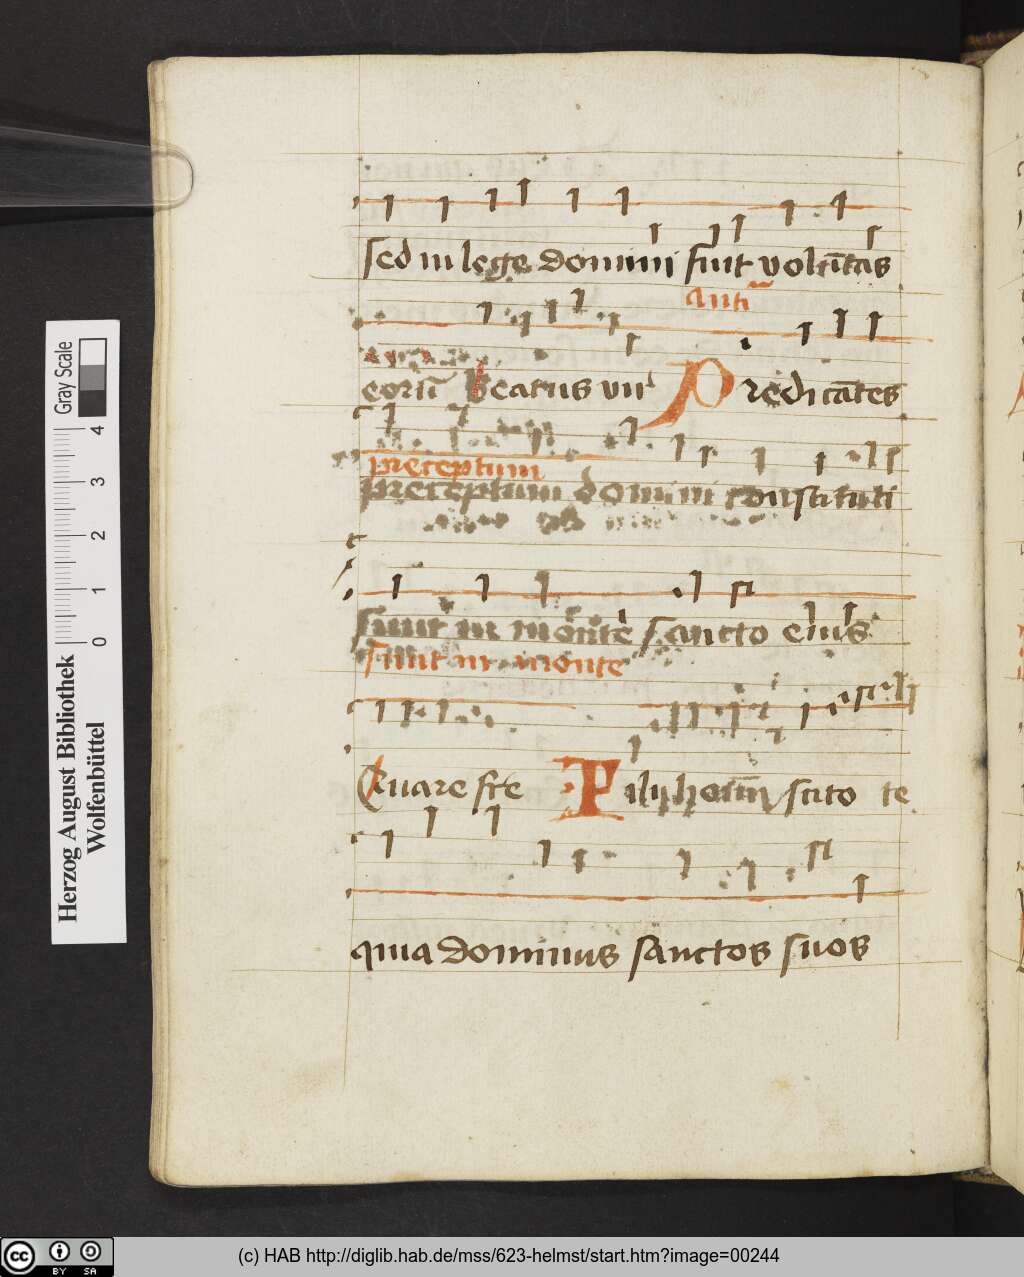 sed in lege domini fuit volūtas
anᷓ
eorū Beatus vir Predicātes
preceptum
preceptum domini constituti
sunt in monte sancto eius
sunt in monte
Quare fre scito te
quia dominus sanctos suos
Gray Scale
0 1 2 3 4
Herzog August Bibliothek
Wolfenbüttel
cc BY SA
(c) HAB http://diglib.hab.de/mss/623-helmst/start.htm?image=00244